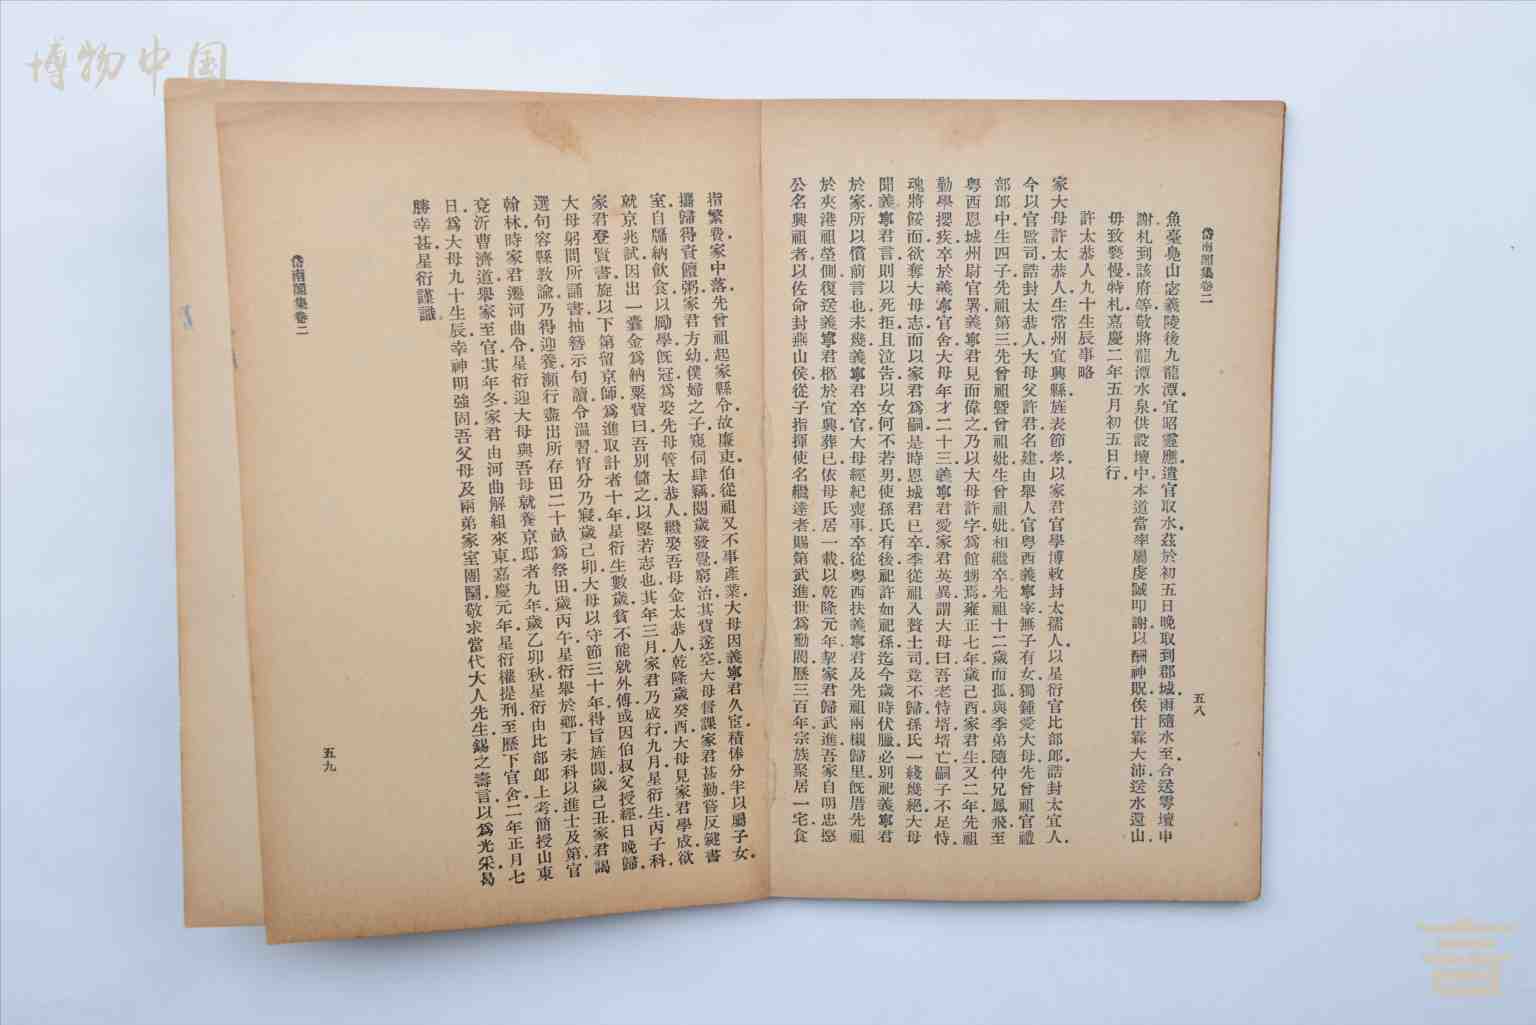 博物中国
岱南閣集卷二
五八
魚臺鳧山宓羲陵後九龍潭宜昭靈應遣官取水茲於初五日晚取到郡城雨隨水至合送雩壇申
謝札到該府等敬將龍潭水泉供設壇中本道當率屬虔誠叩謝以酬神貺俟甘霖大沛送水還山
毋致褻慢特札嘉慶二年五月初五日行
許太恭人九十生辰事略
家大母許太恭人生常州宜興縣旌表節孝以家君官學博敕封太孺人以星衍官比部郎誥封太宜人
今以官監司誥封太恭人大母父許君名建由舉人官粵西義寧宰無子有女獨鍾愛大母先曾祖官禮
部郎中生四子先祖第三先曾祖曁曾祖妣生曾祖妣相繼卒先祖十二歲而孤與季弟隨仲兄鳳飛至
粵西恩城州尉官署義寧君見而偉之乃以大母許字為館甥焉雍正七年歲己酉家君生又二年先祖
勤學攖疾卒於義寧官舍大母年才二十三義寧君愛家君英異謂大母曰吾老恃壻壻亡嗣子不足恃
魂將餒而欲奪大母志而以家君為嗣是時恩城君已卒季從祖入贅土司竟不歸孫氏一綫幾絕大母
聞義寧君言則以死拒且泣告以女何不若男使孫氏有後祀許如祀孫迄今歲時伏臘必別祀義寧君
於家所以償前言也未幾義寧君卒官大母經紀喪事卒從粵西扶義寧君及先祖兩櫬歸里旣厝先祖
於夾港祖塋側復送義寧君柩於宜興葬已依母氏居一載以乾隆元年挈家君歸武進吾家自明忠愍
公名興祖者以佐命封燕山侯從子指揮使名繼達者賜第武進世為勳閥歷三百年宗族聚居一宅食
指繁費家中落先曾祖起家縣令故廉吏伯從祖又不事產業大母因義寧君久宦積俸分半以屬子女
攜歸得資饘粥家君方幼僕婦之子窺伺肆竊閱歲發覺窮治其貲遂空大母督課家君甚勤嘗反鍵書
室自牖納飲食以勵學旣冠為娶先母管太恭人繼娶吾母金太恭人乾隆歲癸酉大母見家君學成欲
就京兆試因出一囊金為納粟貲曰吾別儲之以堅若志也其年三月家君乃成行九月星衍生丙子科
家君登賢書旋以下第留京師為進取計者十年星衍生數歲貧不能就外傅或因伯叔父授經日晚歸
大母躬問所誦書抽簪示句讀令溫習宵分乃寢歲己卯大母以守節三十年得旨旌閭歲己丑家君謁
選句容縣教諭乃得迎養瀕行盡出所存田二十畝為祭田歲丙午星衍舉於鄉丁未科以進士及第官
翰林時家君遷河曲令星衍迎大母與吾母就養京邸者九年歲乙卯秋星衍由比部郎上考簡授山東
兗沂曹濟道舉家至官其年冬家君由河曲解組來東嘉慶元年星衍權提刑至歷下官舍二年正月七
日為大母九十生辰幸神明強固吾父母及兩弟家室團圞敬求當代大人先生錫之壽言以為光采曷
勝幸甚星衍謹識
岱南閣集卷二
五九